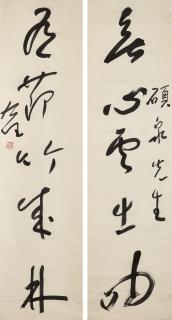 無心雲出岫
碩泉先生
有節竹成林